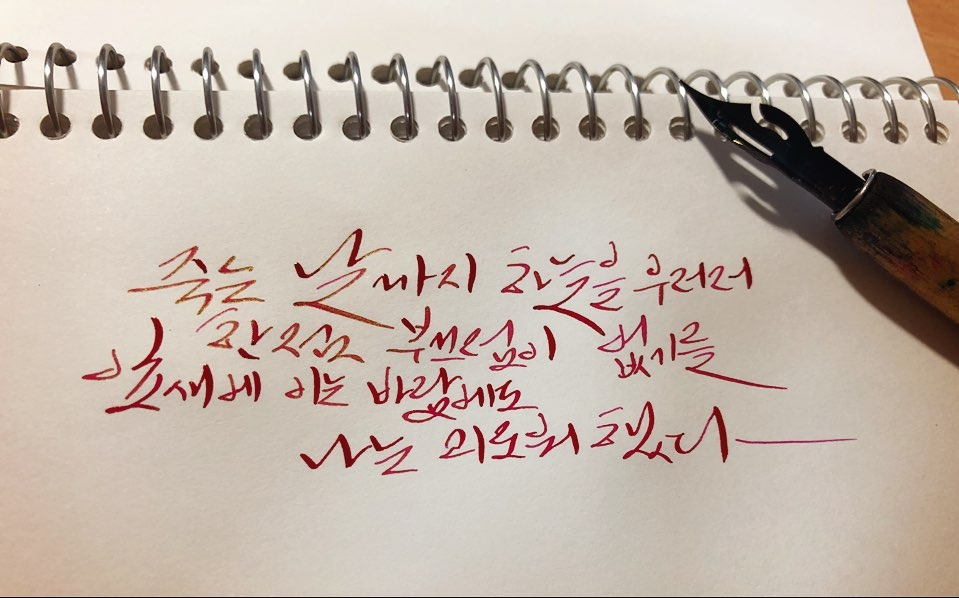 죽는 날까지 하늘을 우러러
한 점 부끄럼이 없기를
잎새에 이는 바람에도
나는 괴로워 했다